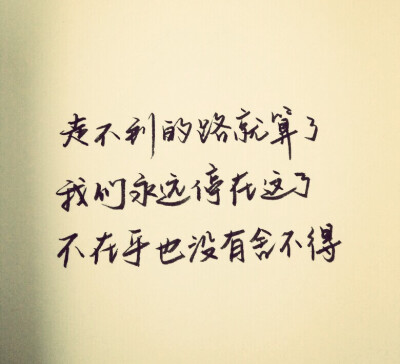 走不到的路就算了
我们永远停在这了
不在乎也没有舍不得